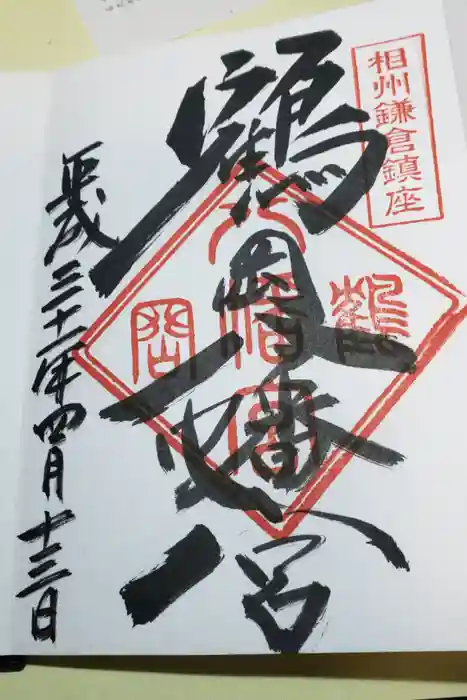 相州鎌倉鎮座
鶴岡八幡宮
鶴岡八幡宮
平成三十一年四月十三日